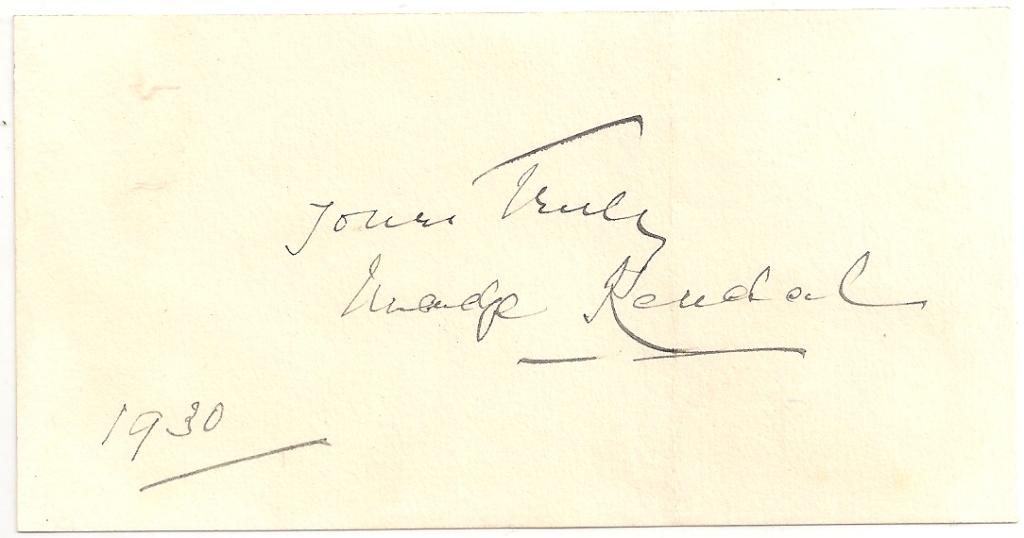 Yours Truly
Madge Kendal
1930